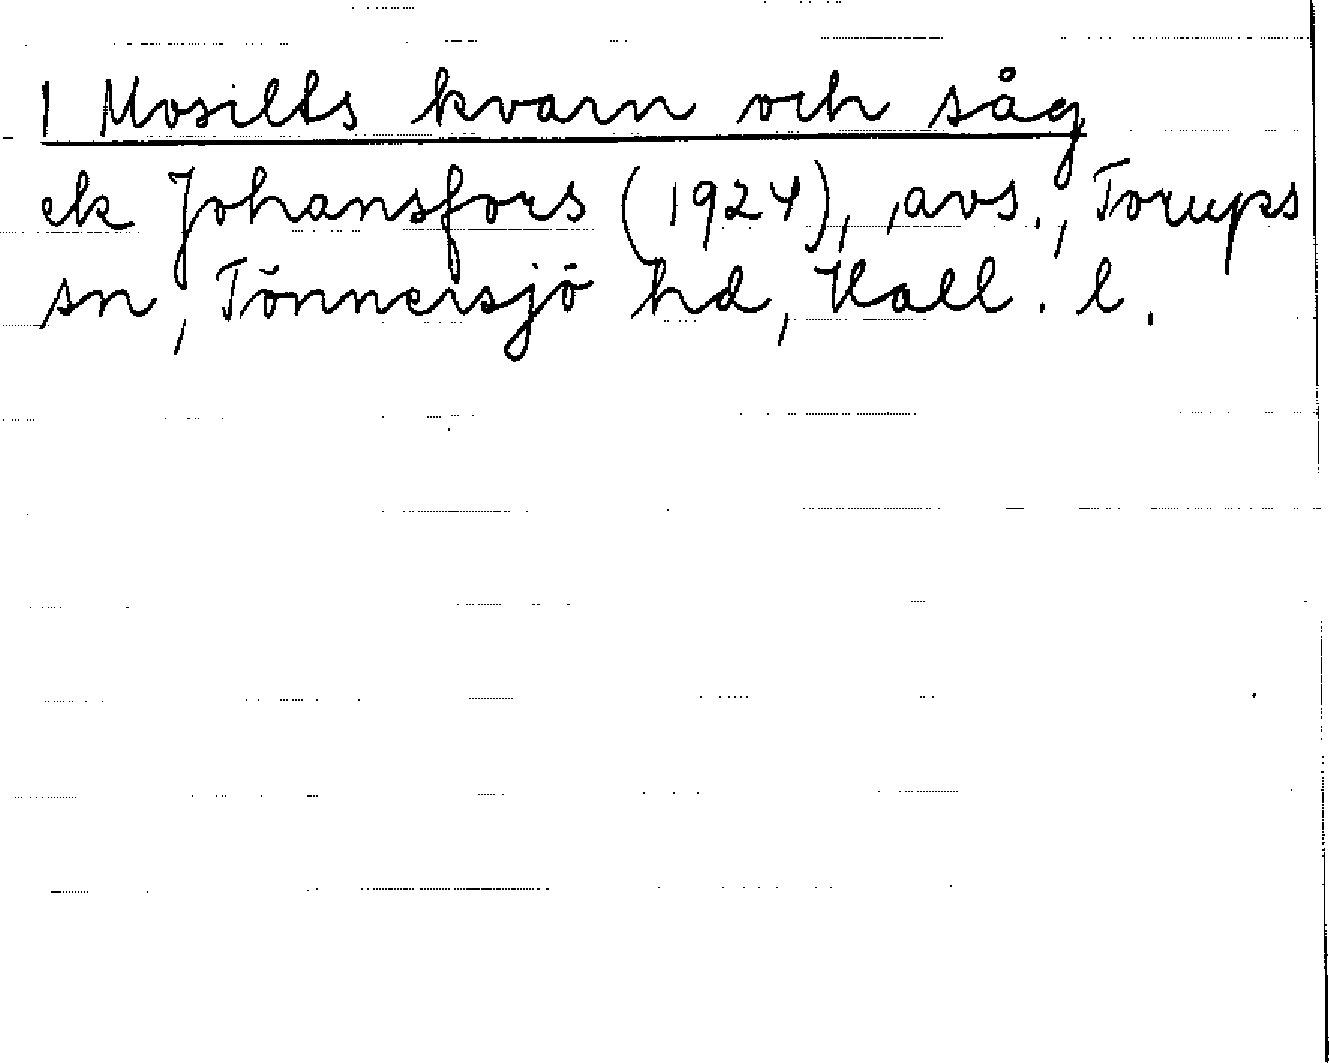 1 Mosilts kvarn och såg
ek Johansfors (1924), avs., Torups
sn, Tönnersjö hd, Hall. l.